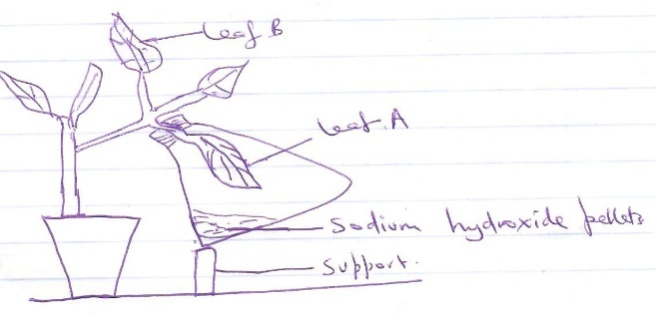 Leaf B
Leaf A
Sodium hydroxide pellets
Support.